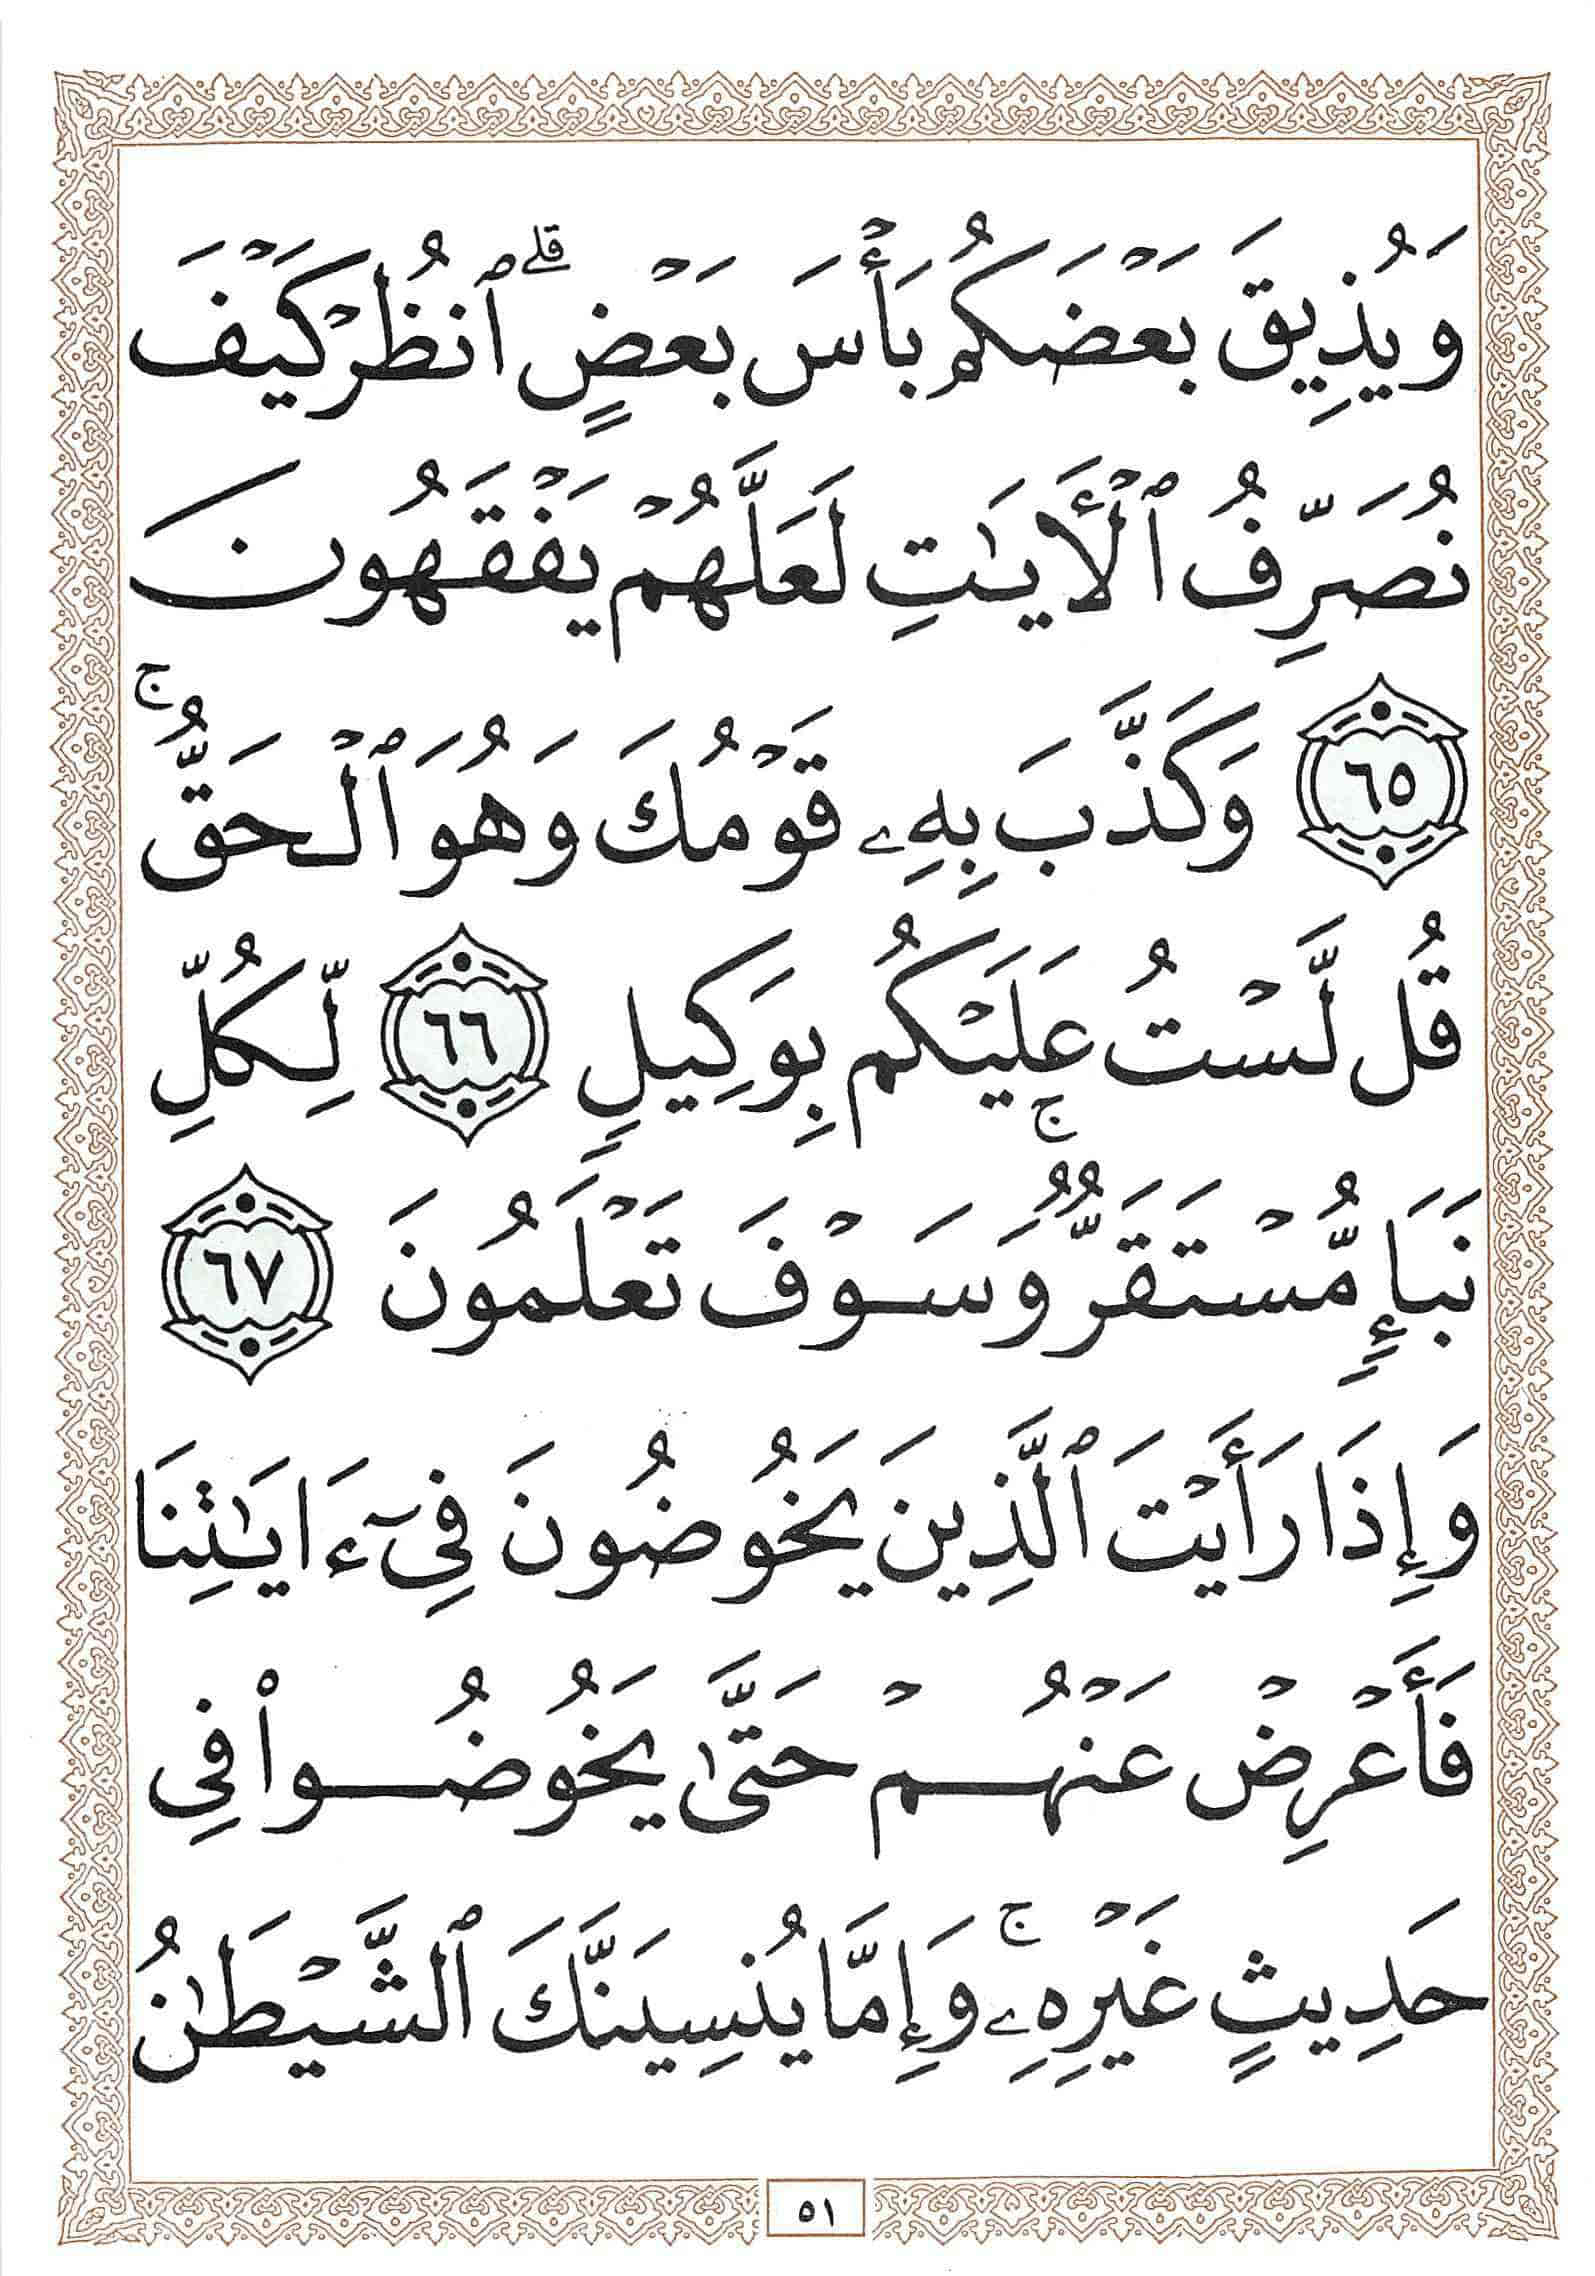 وَيُذِيقَ بَعۡضَكُم بَأۡسَ بَعۡضٍۗ ٱنظُرۡ كَيۡفَ
نُصَرِّفُ ٱلۡأَيَٰتِ لَعَلَّهُمۡ يَفۡقَهُونَ
٦٥ وَكَذَّبَ بِهِۦ قَوۡمُكَ وَهُوَ ٱلۡحَقُّۚ
قُل لَّسۡتُ عَلَيۡكُم بِوَكِيلٖ ٦٦ لِّكُلِّ
نَبَإٖ مُّسۡتَقَرّٞۚ وَسَوۡفَ تَعۡلَمُونَ ٦٧
وَإِذَا رَأَيۡتَ ٱلَّذِينَ يَخُوضُونَ فِيٓ ءَايَٰتِنَا
فَأَعۡرِضۡ عَنۡهُمۡ حَتَّىٰ يَخُوضُواْ فِي
حَدِيثٍ غَيۡرِهِۦۚ وَإِمَّا يُنسِيَنَّكَ ٱلشَّيۡطَٰنُ
٥١